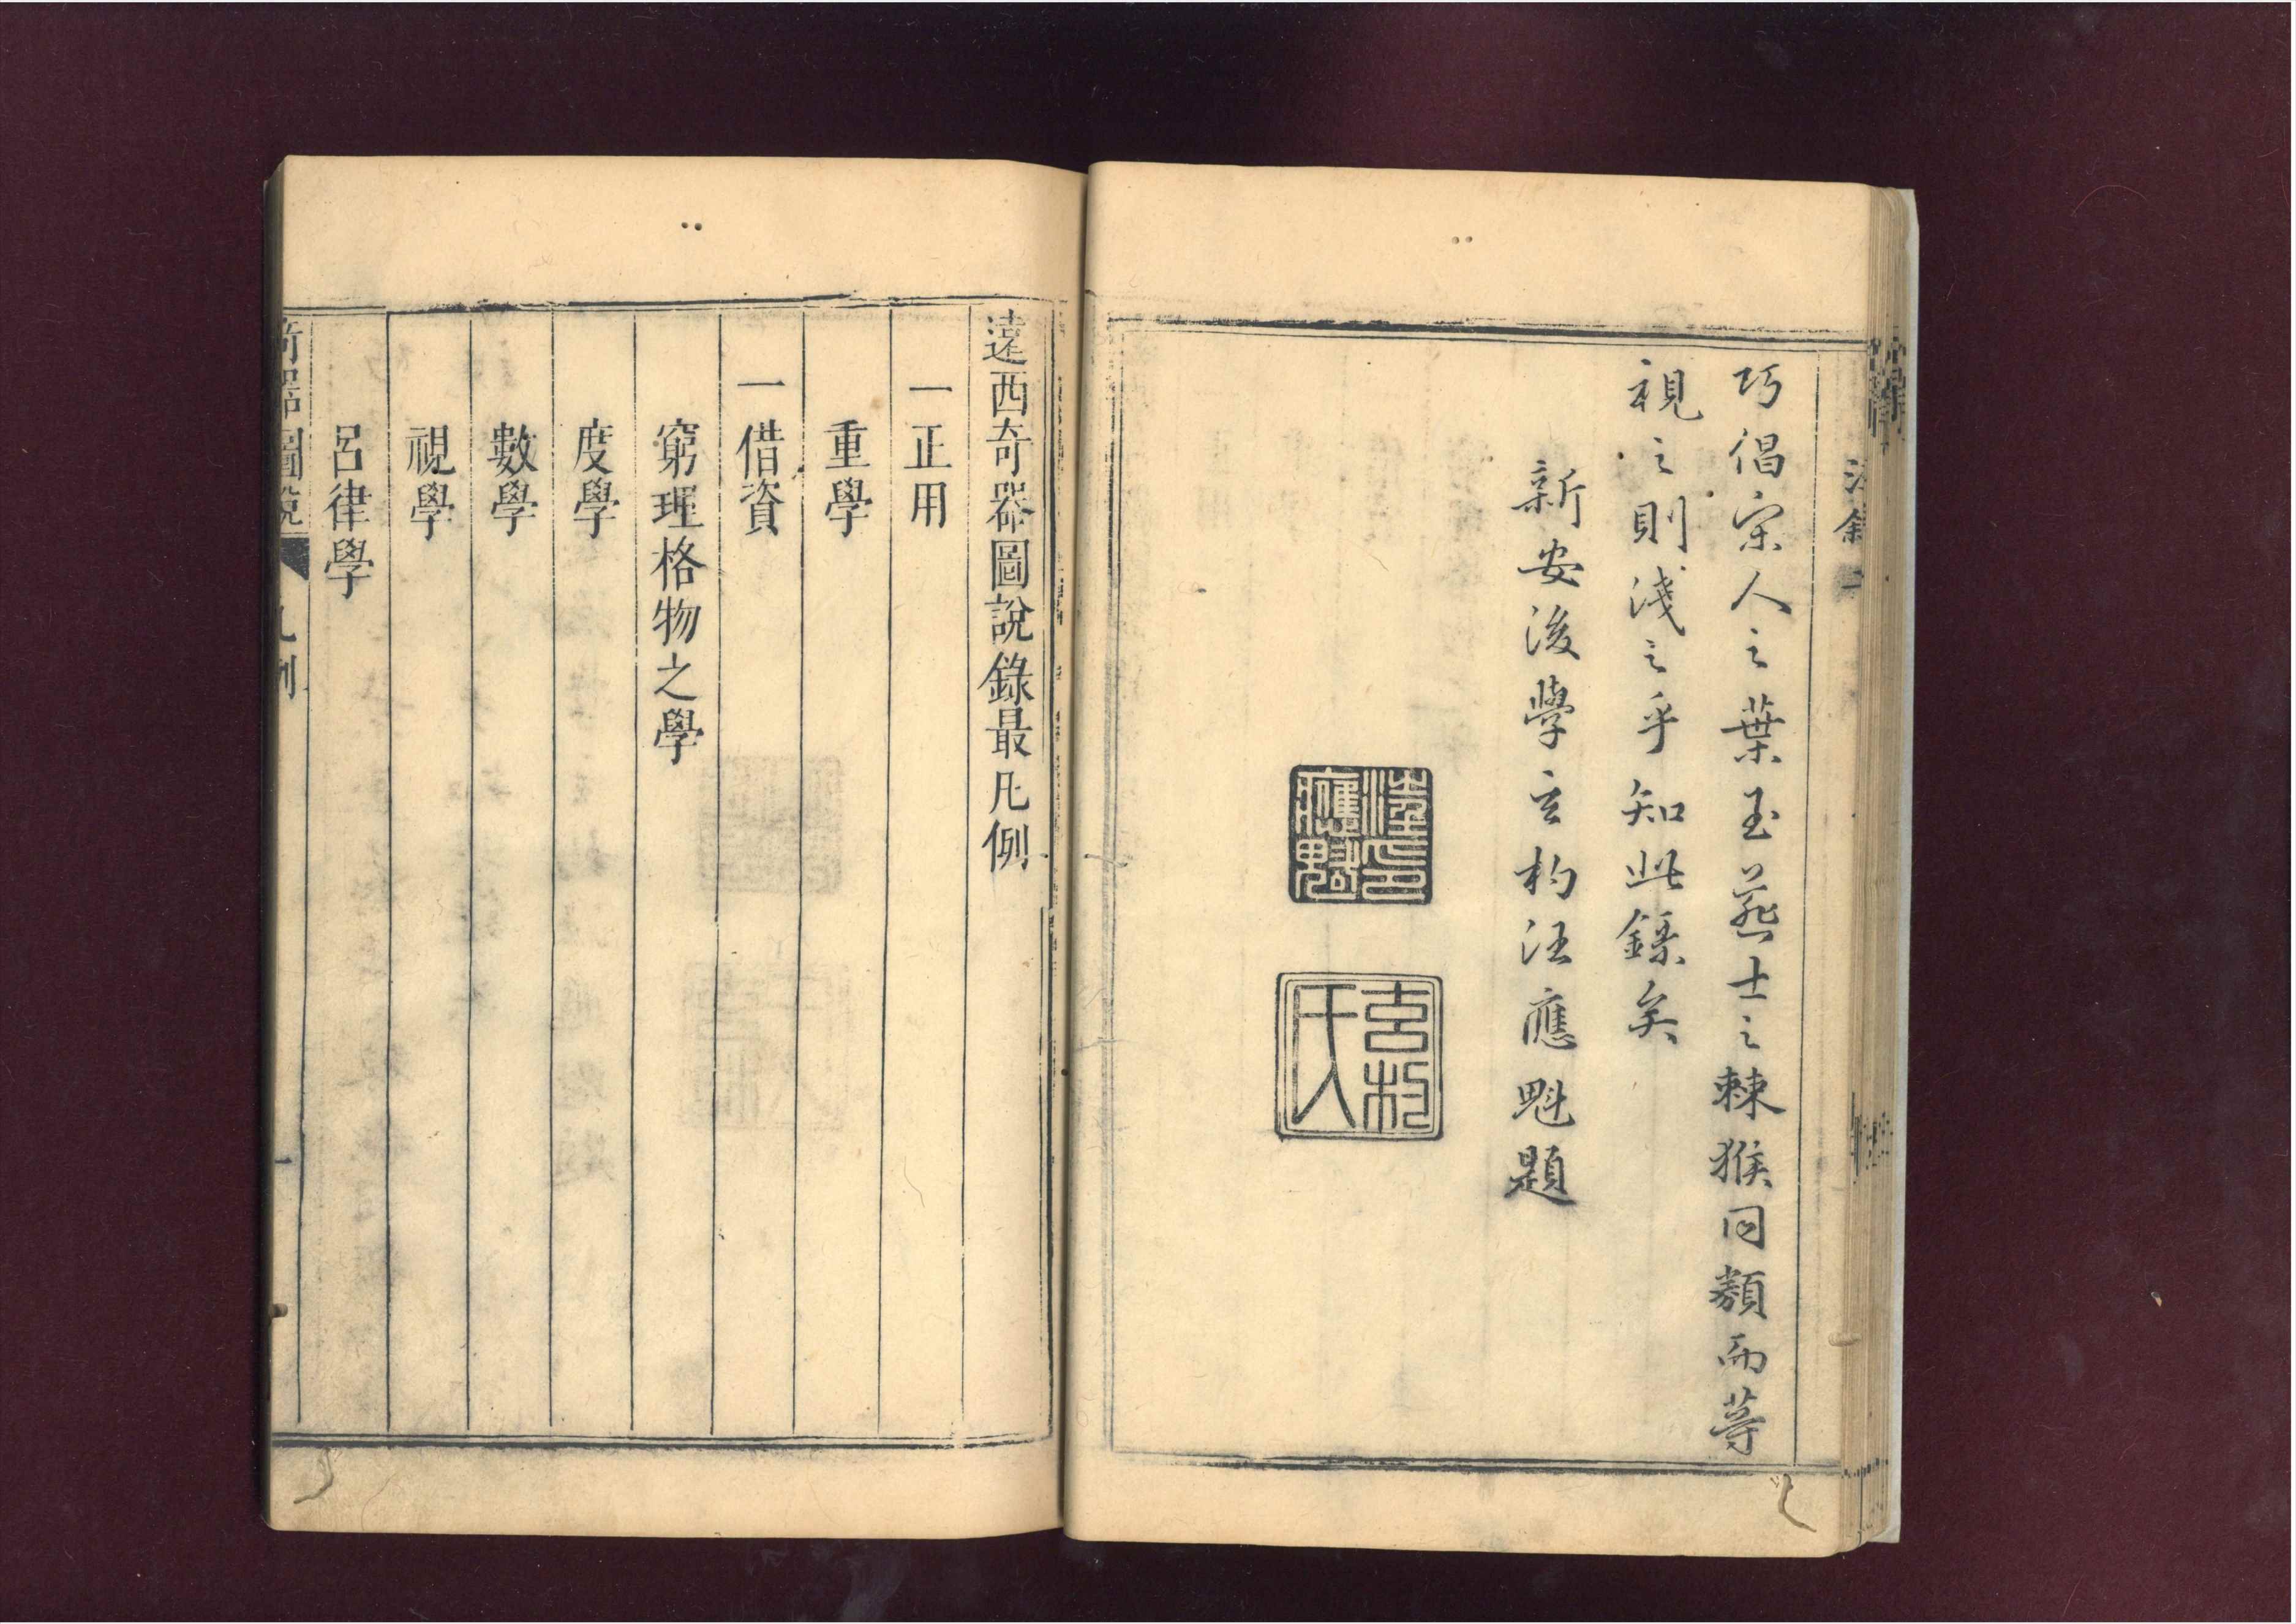 巧倡宋人之葉玉燕士之棘猴同類而等
視之則淺之乎知此錄矣
新安後學玄杓汪應魁題
汪印應魁
玄杓氏
遠西奇器圖說錄最凡例
一正用
重學
一借資
窮理格物之學
度學
數學
視學
呂律學
奇器圖說
凡例
一